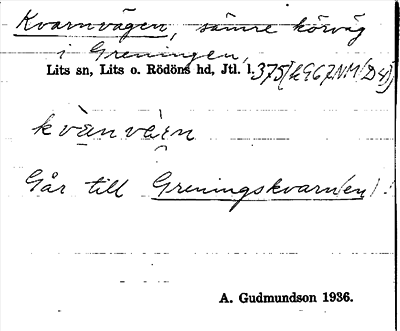 Kvarnvägen, sämre körväg
i Greningen,
Lits sn, Lits o. Rödöns hd, Jtl. l.
kvànvèɪn
Går till Greningskvarn(en).
A. Gudmundson 1936.